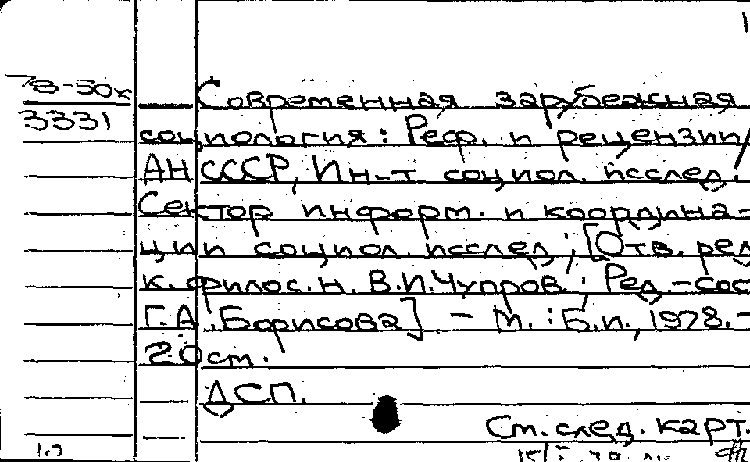 1
78-50к
3331
Современная зарубежная
социология: Реф. и рецензии/
АН СССР, Ин-т социол. исслед.
Сектор информ. и координа-
ции социол. исслед.; [Отв. ред.
к. филос. н. В.И. Чупров; Ред.-сос
Г.А. Борисова] – М.: Б.и., 1978.–
20 см.
ДСП.
См. след. карт.